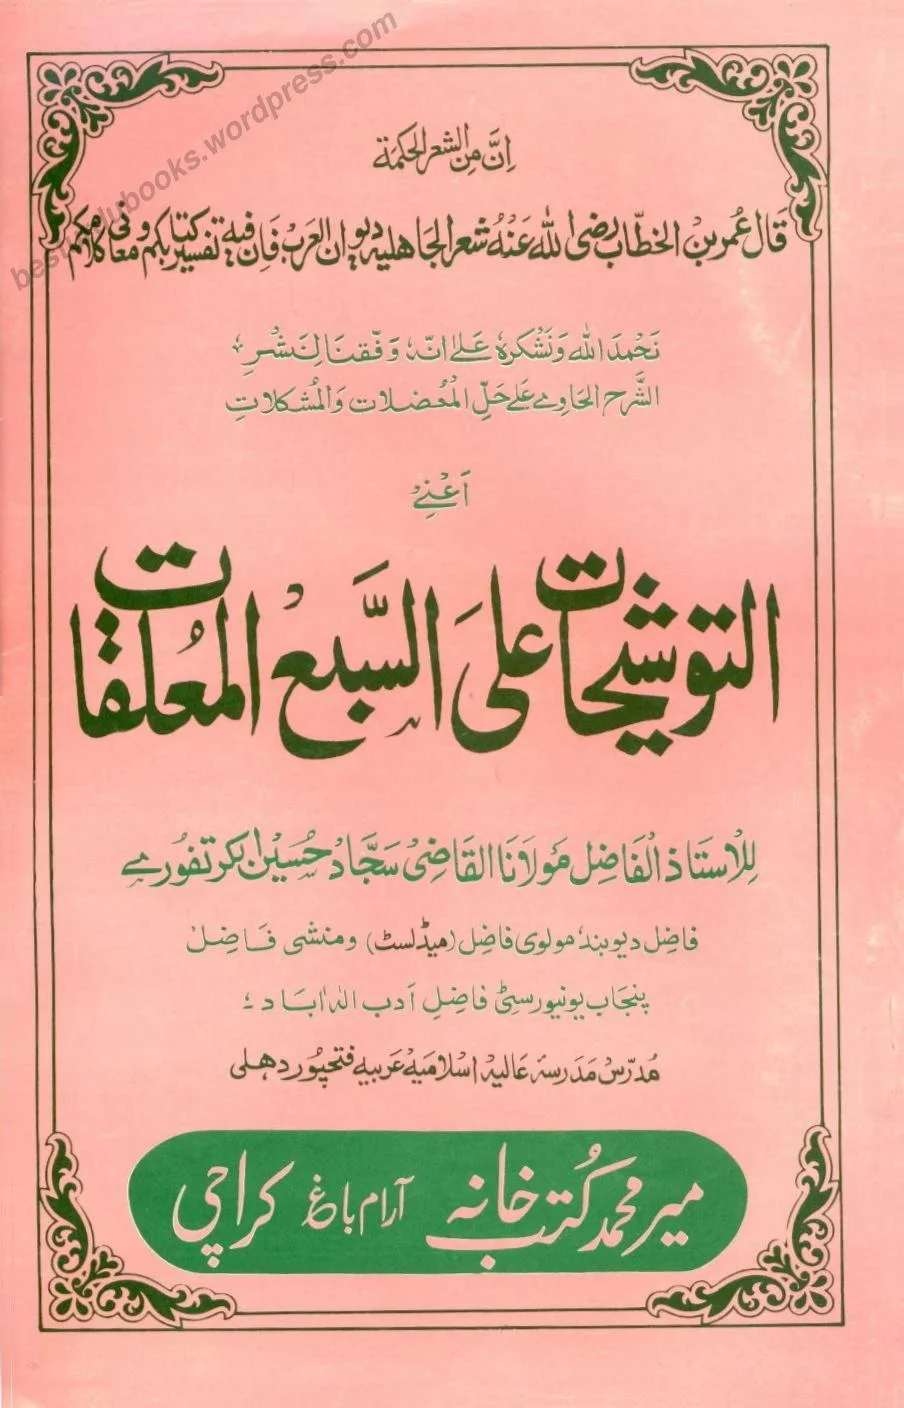 besturdubooks.wordpress.com
اِنَّ مِنَ الشعرِ الحکمۃ
قَالَ عُمر بن الخطّاب رضی اللہ عَنْهُ شعر الجاھلیۃ دیوان العرب فَاِنَّ فیهِ تفسیر کتابکم ومعانی کلامکم
نَحْمَدُ اللهَ وَنَشْکرهٗ عَلےٰ انّہٗ وَفّقنَا لِنَشْرِ
الشَّرح الحَاوِیْ عَلےٰ حَلِّ المُعْضلات وَالمُشکلاتِ
اَعْنِیْ
التوشیحات علَی السَّبعِ المعُلقات
لِلْاستاذ الفَاضِل مَولَانَا القَاضِیْ سَجَّاد حُسَیْن الکرتفُورےٖ
فاضل دیوبند مولوی فاضِل (میڈلسٹ) ومنشی فَاضِل
پنجاب یونیورسٹی فاضِلِ اَدَب الہٰ اٰبَاد ؛
مُدرّس مَدرسہ عَالیہ اسلامیہ عَربیہ فتحپُور دھلی
میر محمد کُتب خانہ آرام باغ کراچی